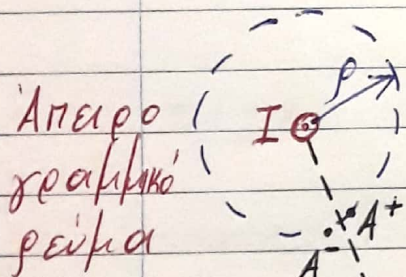 Άπειρο
γραμμικό
ρεύμα
I
ρ
A+
A-